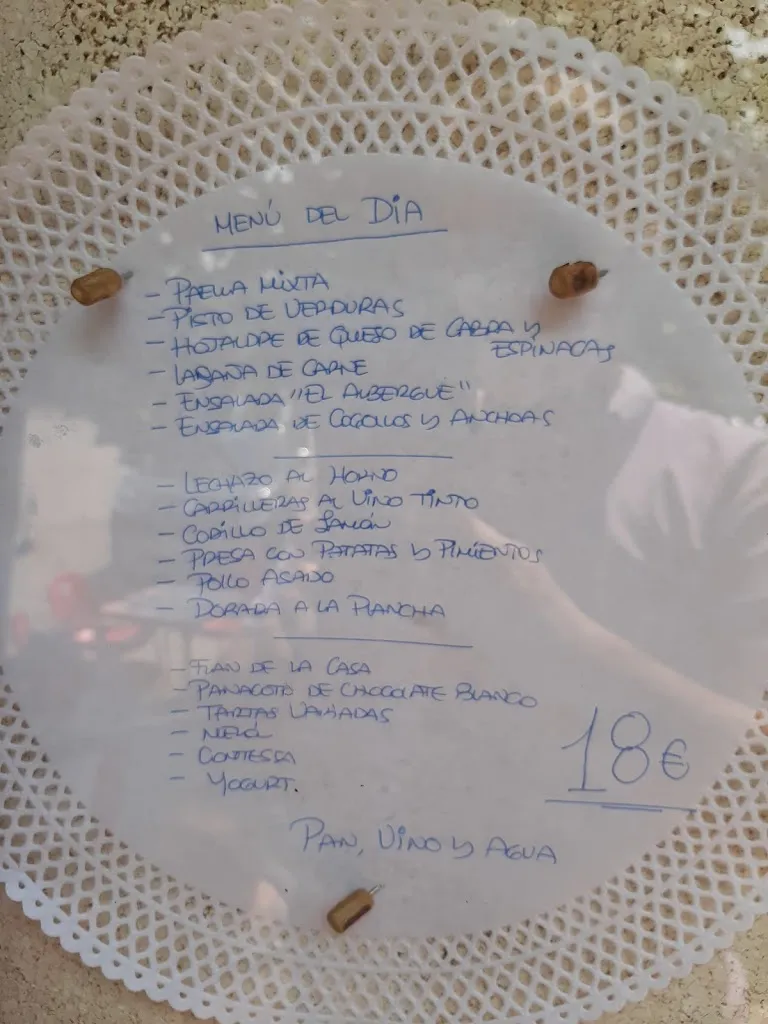 MENÚ DEL DIA
- PAELLA MIXTA
- PISTO DE VERDURAS
- HOJALDRE DE QUESO DE CABRA Y
ESPINACAS
- LASAÑA DE CARNE
- ENSALADA "EL ALBERGUE"
- ENSALADA DE COGOLLOS Y ANCHOAS
- LECHAZO AL HORNO
- CARRILLERAS AL VINO TINTO
- CODILLO DE JAMÓN
- PRESA CON PATATAS Y PIMIENTOS
- POLLO ASADO
- DORADA A LA PLANCHA
- FLAN DE LA CASA
- PANACOTA DE CHOCOLATE BLANCO
- TARTAS VARIADAS
- MELÓN
- CONTESSA
- YOGURT.
18€
PAN, VINO Y AGUA